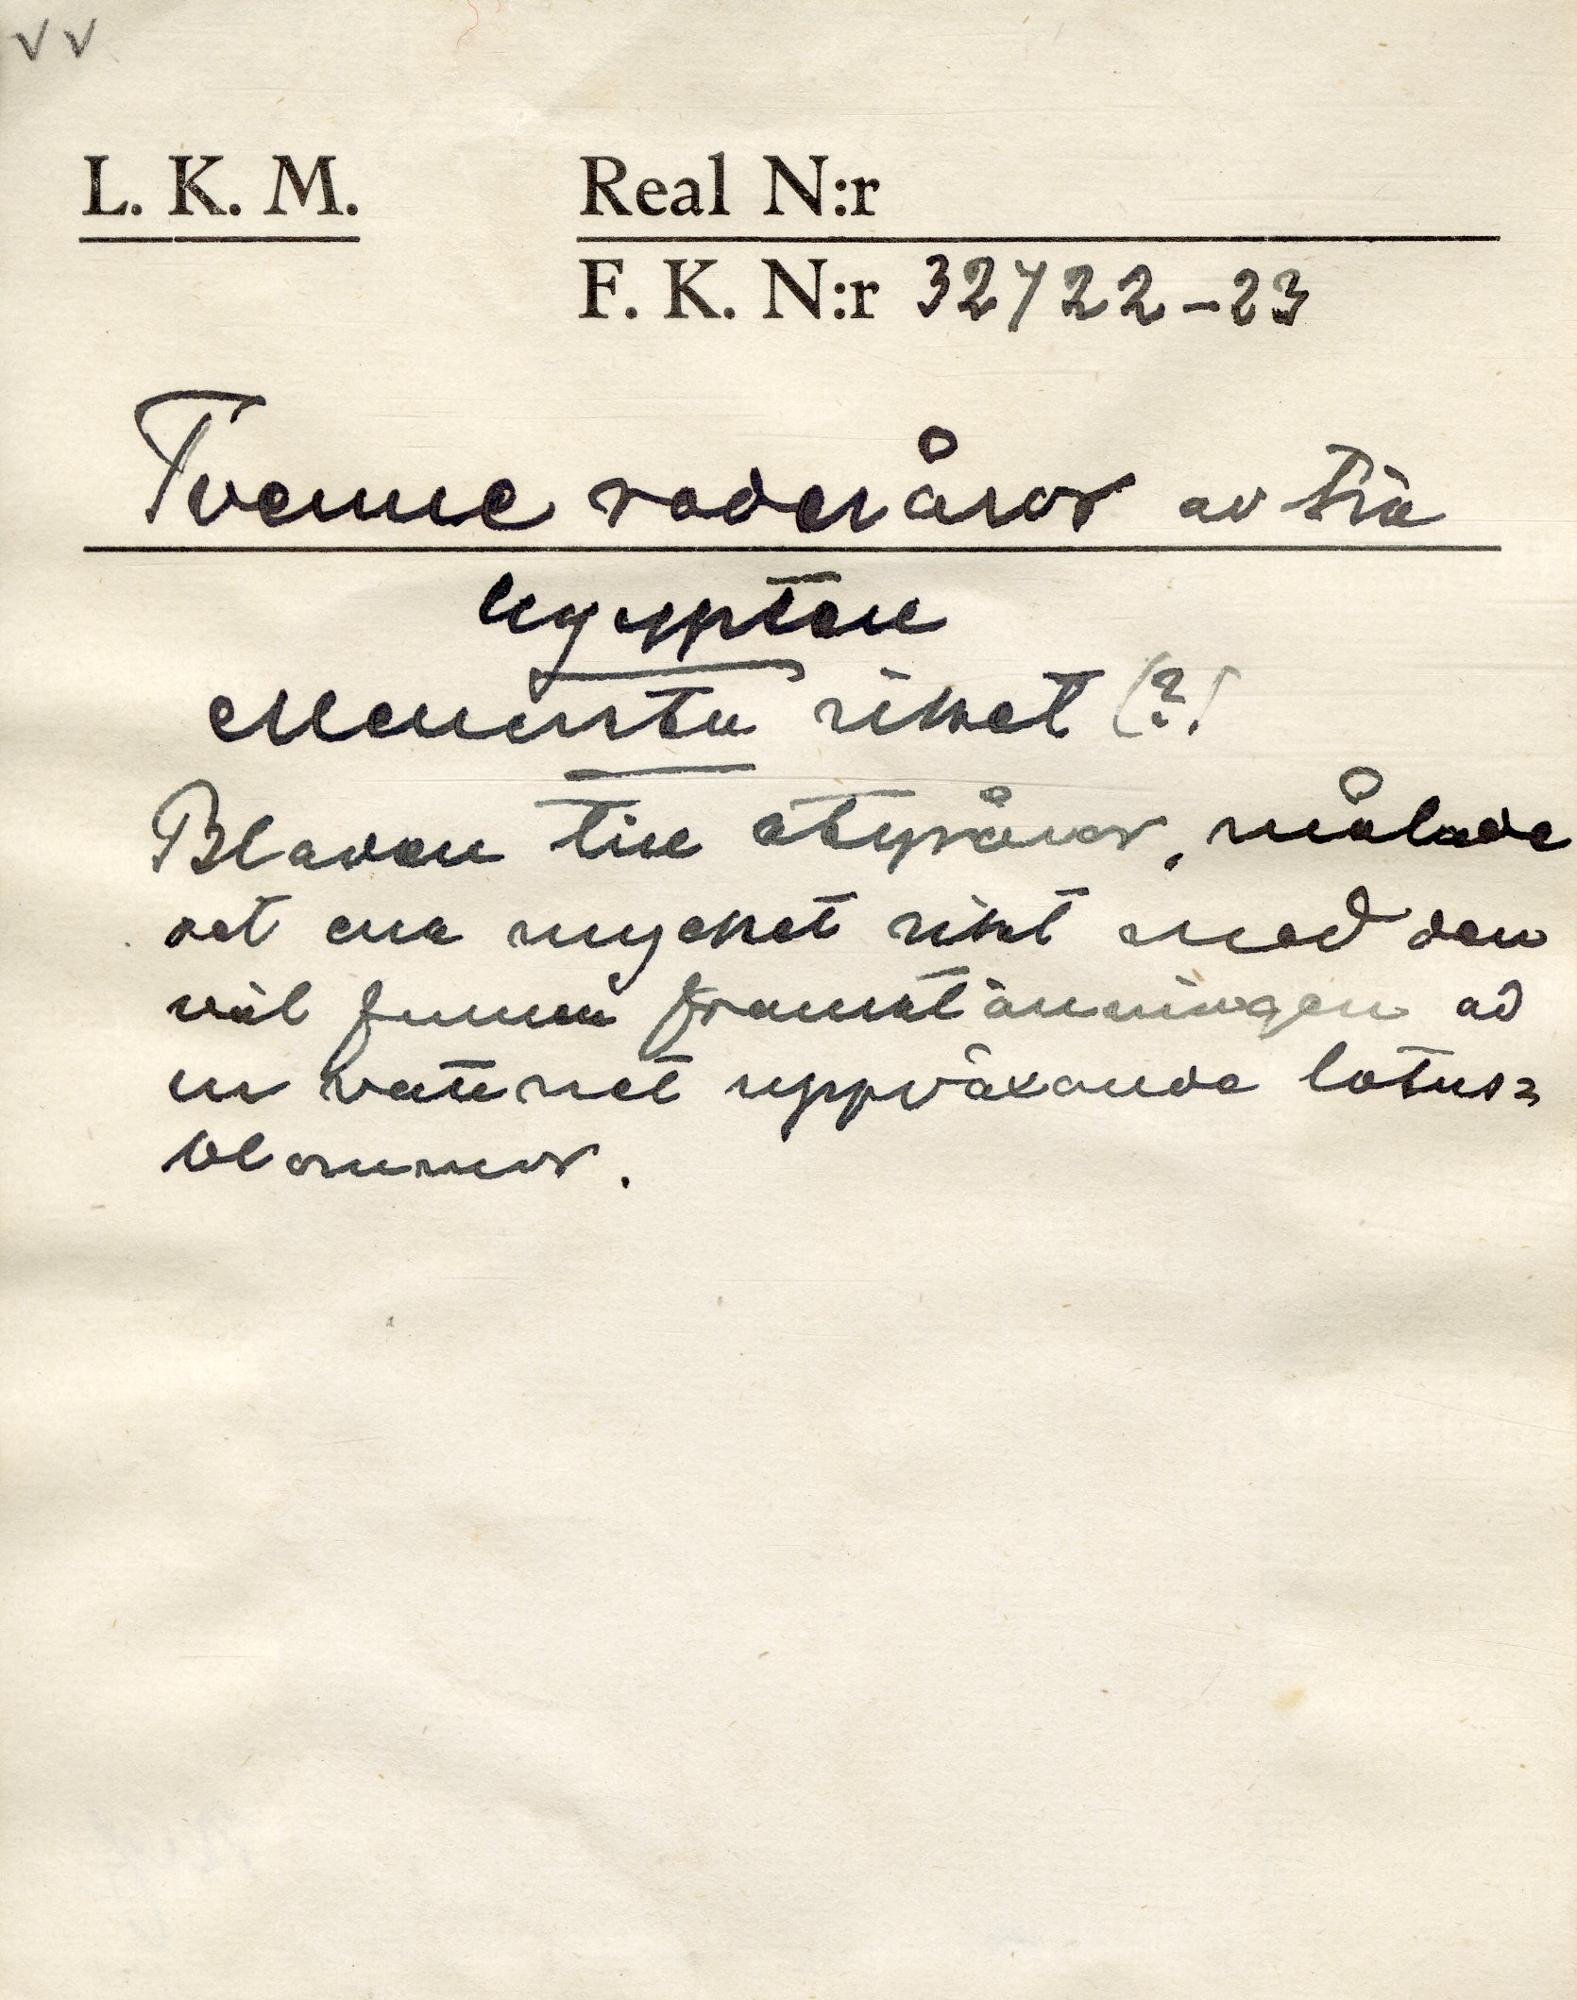 √ √
L. K. M. Real N:r
F. K. N:r 32722-23
Tvenne roderåror av trä
Egypten
Mellersta riket (?)
Bladen till styråror, målade
det ena mycket rikt med den
väl funna framställningen av
ur vattnet uppväxande lotus=
blommor.